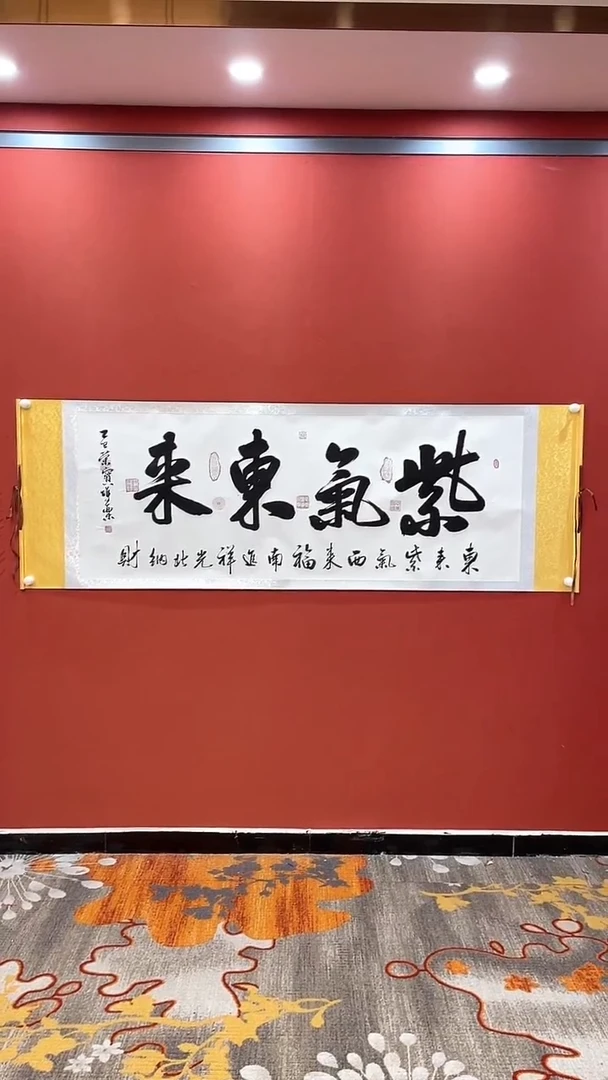 紫氣東来
東来紫氣西来福南進祥光北納財